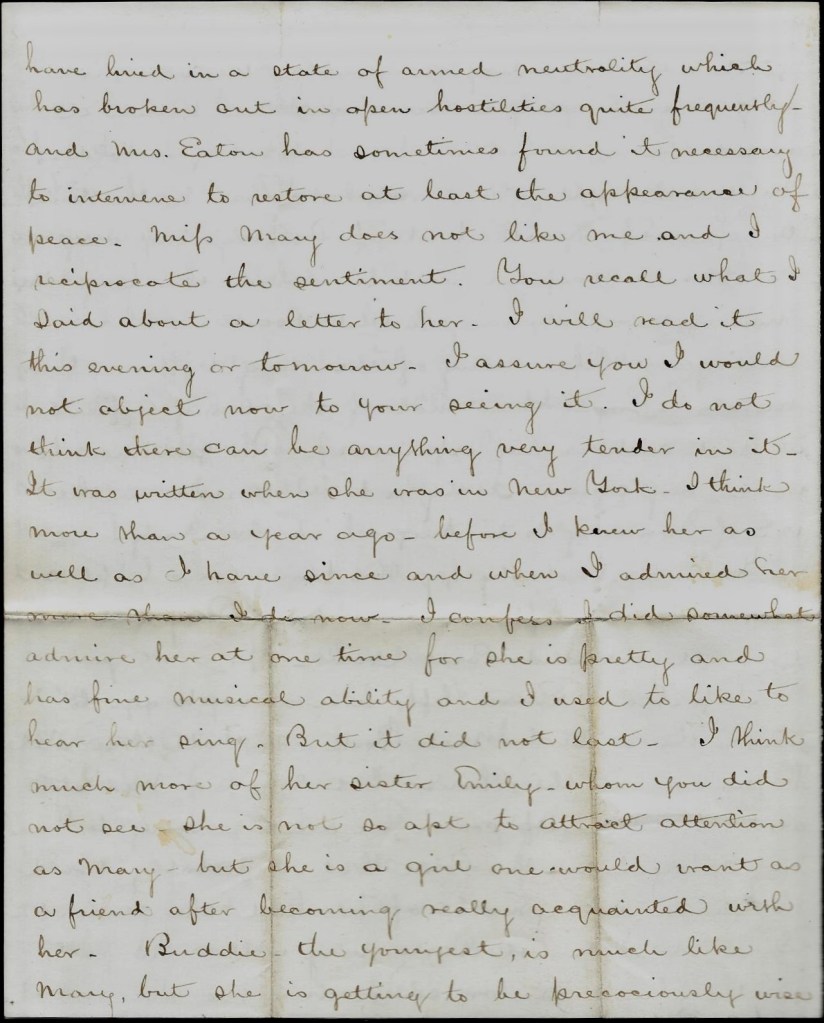 have lived in a state of armed neutrality which
has broken out in open hostilities quite frequently -
and Mrs. Eaton has sometimes found it necessary
to intervene to restore at least the appearance of
peace. Miss Mary does not like me and I
reciprocate the sentiment. You recall what I
said about a letter to her. I will read it
this evening or tomorrow - I assure you I would
not object now to your seeing it. I do not
think there can be anything very tender in it -
It was written when she was in New York - I think
more than a year ago - before I knew her as
well as I have since and when I admired her
more than I do now - I confess I did somewhat
admire her at one time for she is pretty and
has fine musical ability and I used to like to
hear her sing. But it did not last - I think
much more of her sister Emily - whom you did
not see - she is not so apt to attract attention
as Mary - but she is a girl one would want as
a friend after becoming really acquainted with
her - Buddie - the youngest, is much like
Mary, but she is getting to be precociously wise